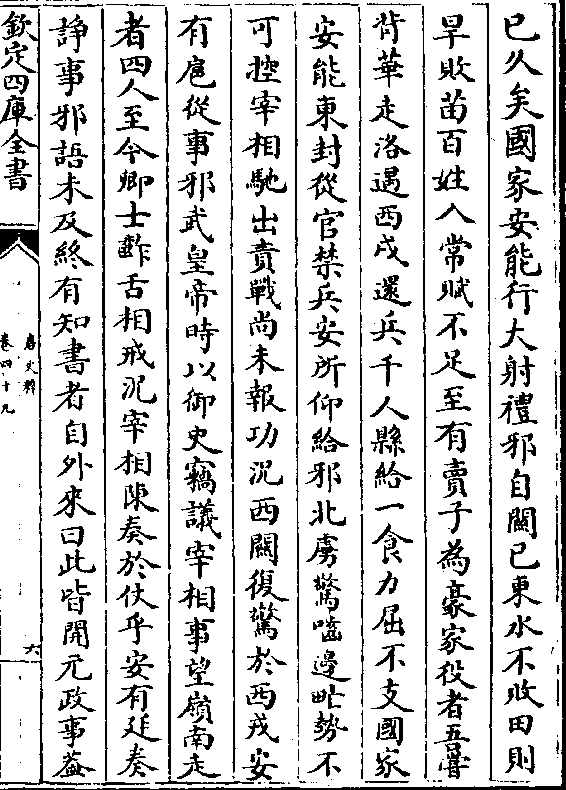 已久矣國家安能行大射禮邪自關已東水不敗田則
旱敗苗百姓入常賦不足至有賣子為豪家役者吾嘗
背華走洛遇西戍還兵千人縣給一食力屈不支國家
安能東封從官禁兵安所仰給邪北虜驚嚙邊甿勢不
可控宰相馳出責戰尚未報功況西關復驚於西戎安
有扈從事邪武皇帝時以御史竊議宰相事望嶺南走
者四人至今卿士齰舌相戒況宰相陳奏於仗乎安有廷奏
諍事邪語未及終有知書者自外來曰此皆開元政事葢
欽定四庫全書
唐文粹
卷四十九
六